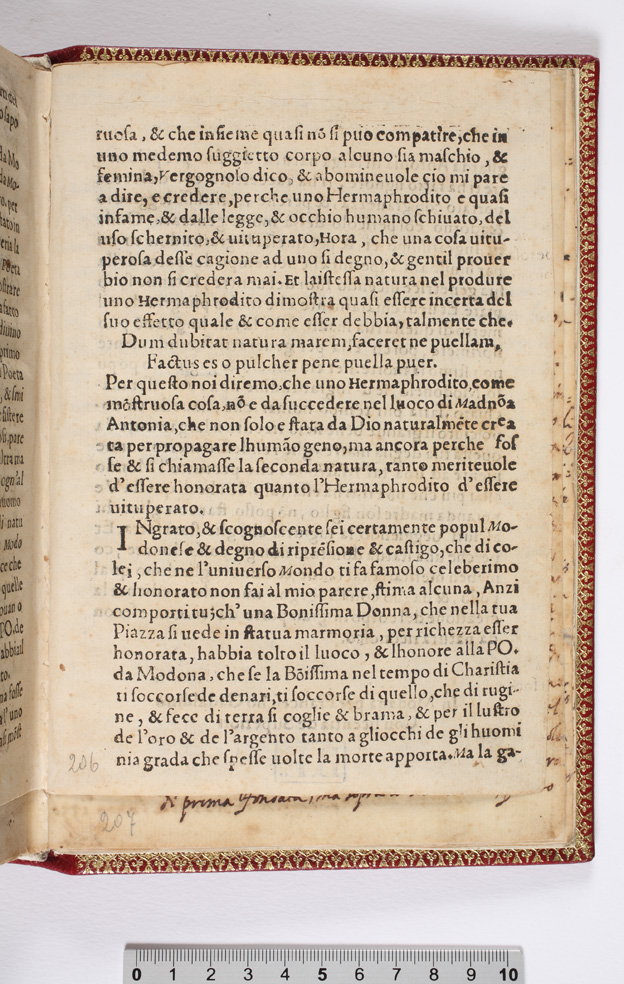 ruosa, & che insieme quasi nõ si puo compatire, che in
uno medemo suggietto corpo alcuno sia maschio, &
femina, Vergognolo dico, & abomineuole cio mi pare
a dire, e credere, perche uno Hermaphrodito e quasi
infame, & dalle legge, & occhio humano schiuato, del
uso schernito, & uituperato, Hora, che una cosa uitu-
perosa desse cagione ad uno si degno, & gentil prouer
bio non si credera mai. Et laistessa natura nel produre
uno Hermaphrodito dimostra quasi essere incerta del
suo effetto quale & come esser debbia, talmente che.
Dum dubitat natura marem, faceret ne puellam,
Factus es o pulcher pene puella puer.
Per questo noi diremo, che uno Hermaphrodito, come
mõstruosa cosa, nõ e da succedere nel luoco di Madnõa
Antonia, che non solo e stata da Dio naturalmẽte crea
ta per propagare lhumão geno, ma ancora perche fos
se & si chiamasse la seconda natura, tanto meriteuole
d'essere honorata quanto l'Hermaphrodito d'essere
uituperato.
INgrato, & scognoscente sei certamente popul Mo-
donese & degno di riprẽsione & castigo, che di co-
lei, che ne l'uniuerso Mondo ti fa famoso celeberimo
& honorato non fai al mio parere, stima alcuna, Anzi
comporti tu, ch' una Bonissima Donna, che nella tua
Piazza si uede in statua marmoria, per richezza esser
honorata, habbia tolto il luoco, & lhonore alla PO.
da Modona, che se la Bõissima nel tempo di Charistia
ti soccorse de denari, ti soccorse di quello, che di rugi-
ne, & fece di terra si coglie & brama, & per il lustro
de l'oro & de l'argento tanto a gliocchi de gli huomi
nia grada che spesse uolte la morte apporta. Ma la ga-
206
di prima
207
0 1 2 3 4 5 6 7 8 9 10